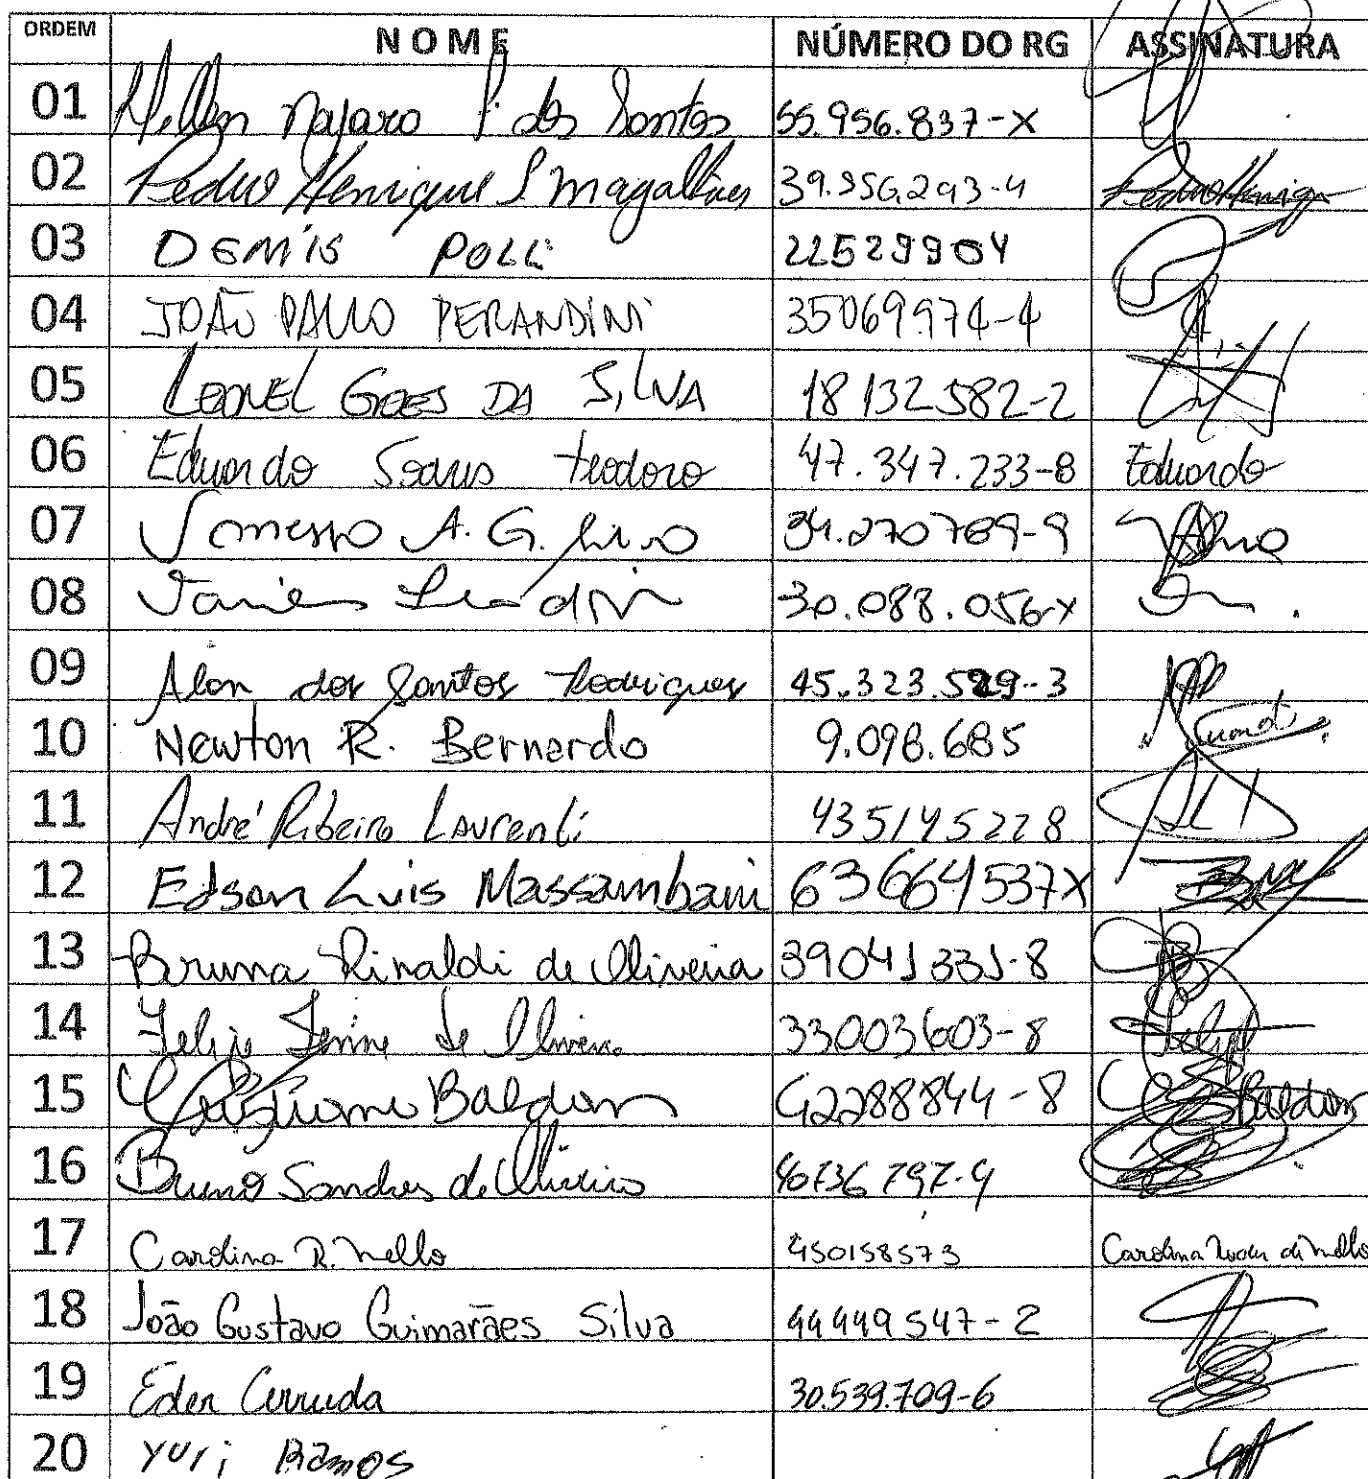 ORDEM NOME NÚMERO DO RG ASSINATURA
01 dos Santos 55.956.837-X
02 Pedro Henrique S Magalhães 39.956.293-4 Pedro Henriqu
03 DEMIS POLI 22529904
04 JOÃO PAULO PERANDINI 35069974-4
05 LEONEL GOES DA SILVA 18 132 582-2
06 Eduardo Soares teodoro 47.347.233-8 Eduardo
07 A. G. 34.270769-9
08 30.088.056-X
09 Alan dos Santos Rodrigues 45.323.529-3
10 Newton R. Bernardo 9.098.685
11 André Ribeiro Laurenti 435145228
12 Edson Luis Massambani 63664537X
13 Bruna Rinaldi de Oliveira 39041331-8
14 Felipe de Oliveira 33003603-8 Felipe
15 Baldon 42288844-8 Baldon
16 Bruno Sandres de Oliveira 40736797-4
17 Carolina R. Mello 450158573 Carolina de Mello
18 João Gustavo Guimarães Silva 44449547-2
19 Eder Arruda 30.539.709-6
20 Yuri Ramos